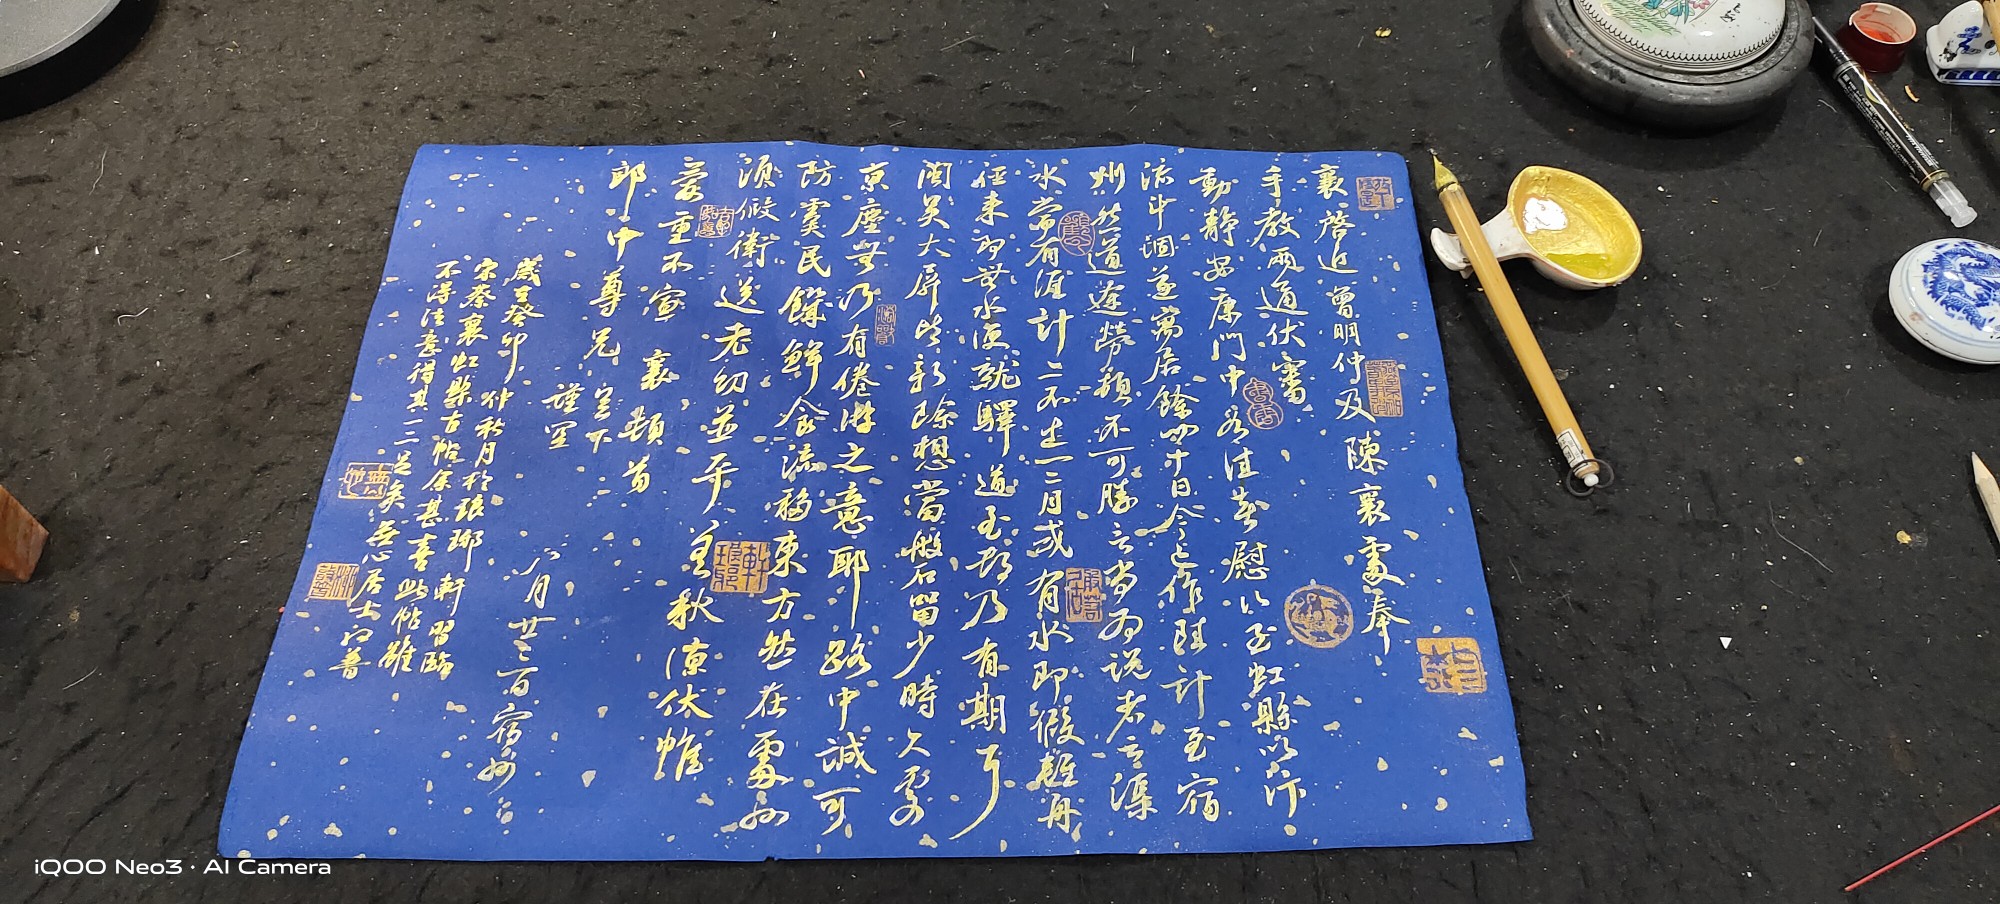 襄啓近曾明仲及陳襄處奉
手教兩通伏審
動靜安康門中各佳甚慰以至虹縣以汴
流斗涸遂寓居餘四十日今已作陸計至宿
州然道途勞頓不可勝言尚為說者云渠
水當有涯計亦不出一二月或有水即假輕舟
徑來即無水便就驛道至都乃有期耳
閩吳大屏皆新除想當盤石留少時久處
京塵無乃有倦遊之意耶路中誠可
防冀民饑鮮食流移東方然在處州
須假衛送老幼並平安秋涼伏惟
愛重不宣 襄頓首
郎中尊兄足下
謹空
八月廿二日宿州
歲在癸卯仲秋月於琅琊軒習臨
宋蔡襄虹縣古帖余甚喜此帖雖
不得法意得其一二足矣無心居士
iQOO Neo3 · AI Camera